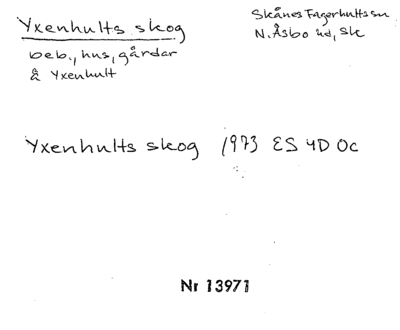 Yxenhults skog
Skånes Fagerhults sn
N. Åsbo hd, Sk
beb., hus, gårdar
å Yxenhult
Yxenhults skog 1973 ES 4D 0c
Nr 13971